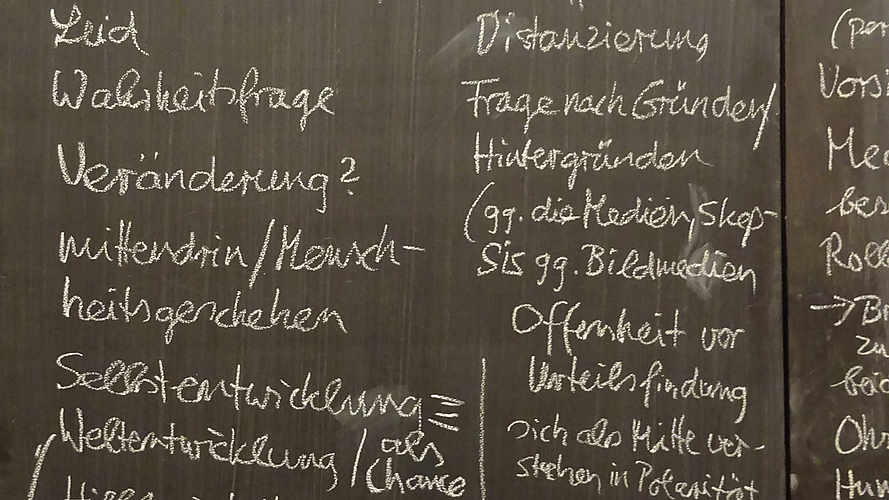 Leid
Wahrheitsfrage
Veränderung?
mittendrin/Mensch-
heitsgeschehen
Selbstentwicklung ≡
Weltentwicklung / als
Chance
Distanzierung
Frage nach Gründen/
Hintergründen
(gg. die Medien, Skep-
sis gg. Bildmedien
Offenheit vor
Urteilsfindung
sich als Mitte ver-
stehen in Polarität
(per
Vorsi
Med
bes
Roll
→ Br
zu
Oh
Hum